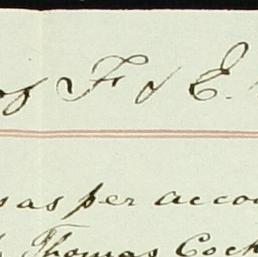 of F & E.
as per acco
Thomas Cock